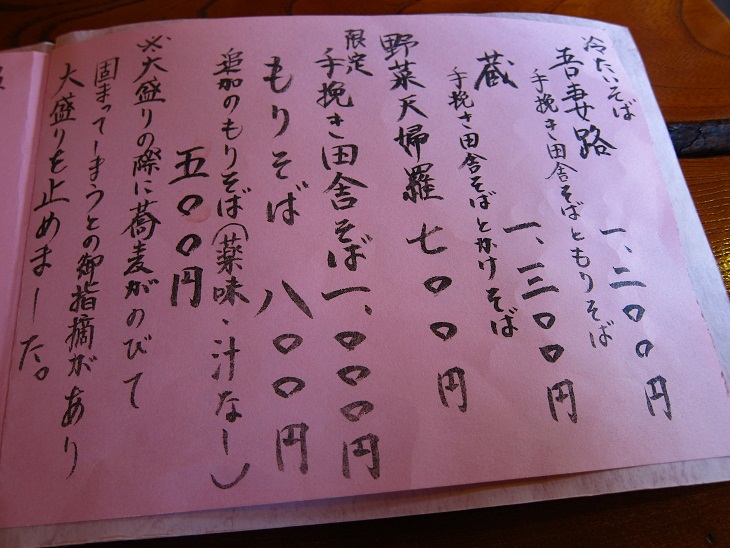 冷たいそば
吾妻路 一、二〇〇円
手挽き田舎そばともりそば
蔵 一、三〇〇円
手挽き田舎そばとかけそば
野菜天婦羅 七〇〇円
限定
手挽き田舎そば 一、〇〇〇円
もりそば 八〇〇円
追加のもりそば(薬味・汁なし)
五〇〇円
※大盛りの際に蕎麦がのびて
固まってしまうとの御指摘があり
大盛りを止めました。